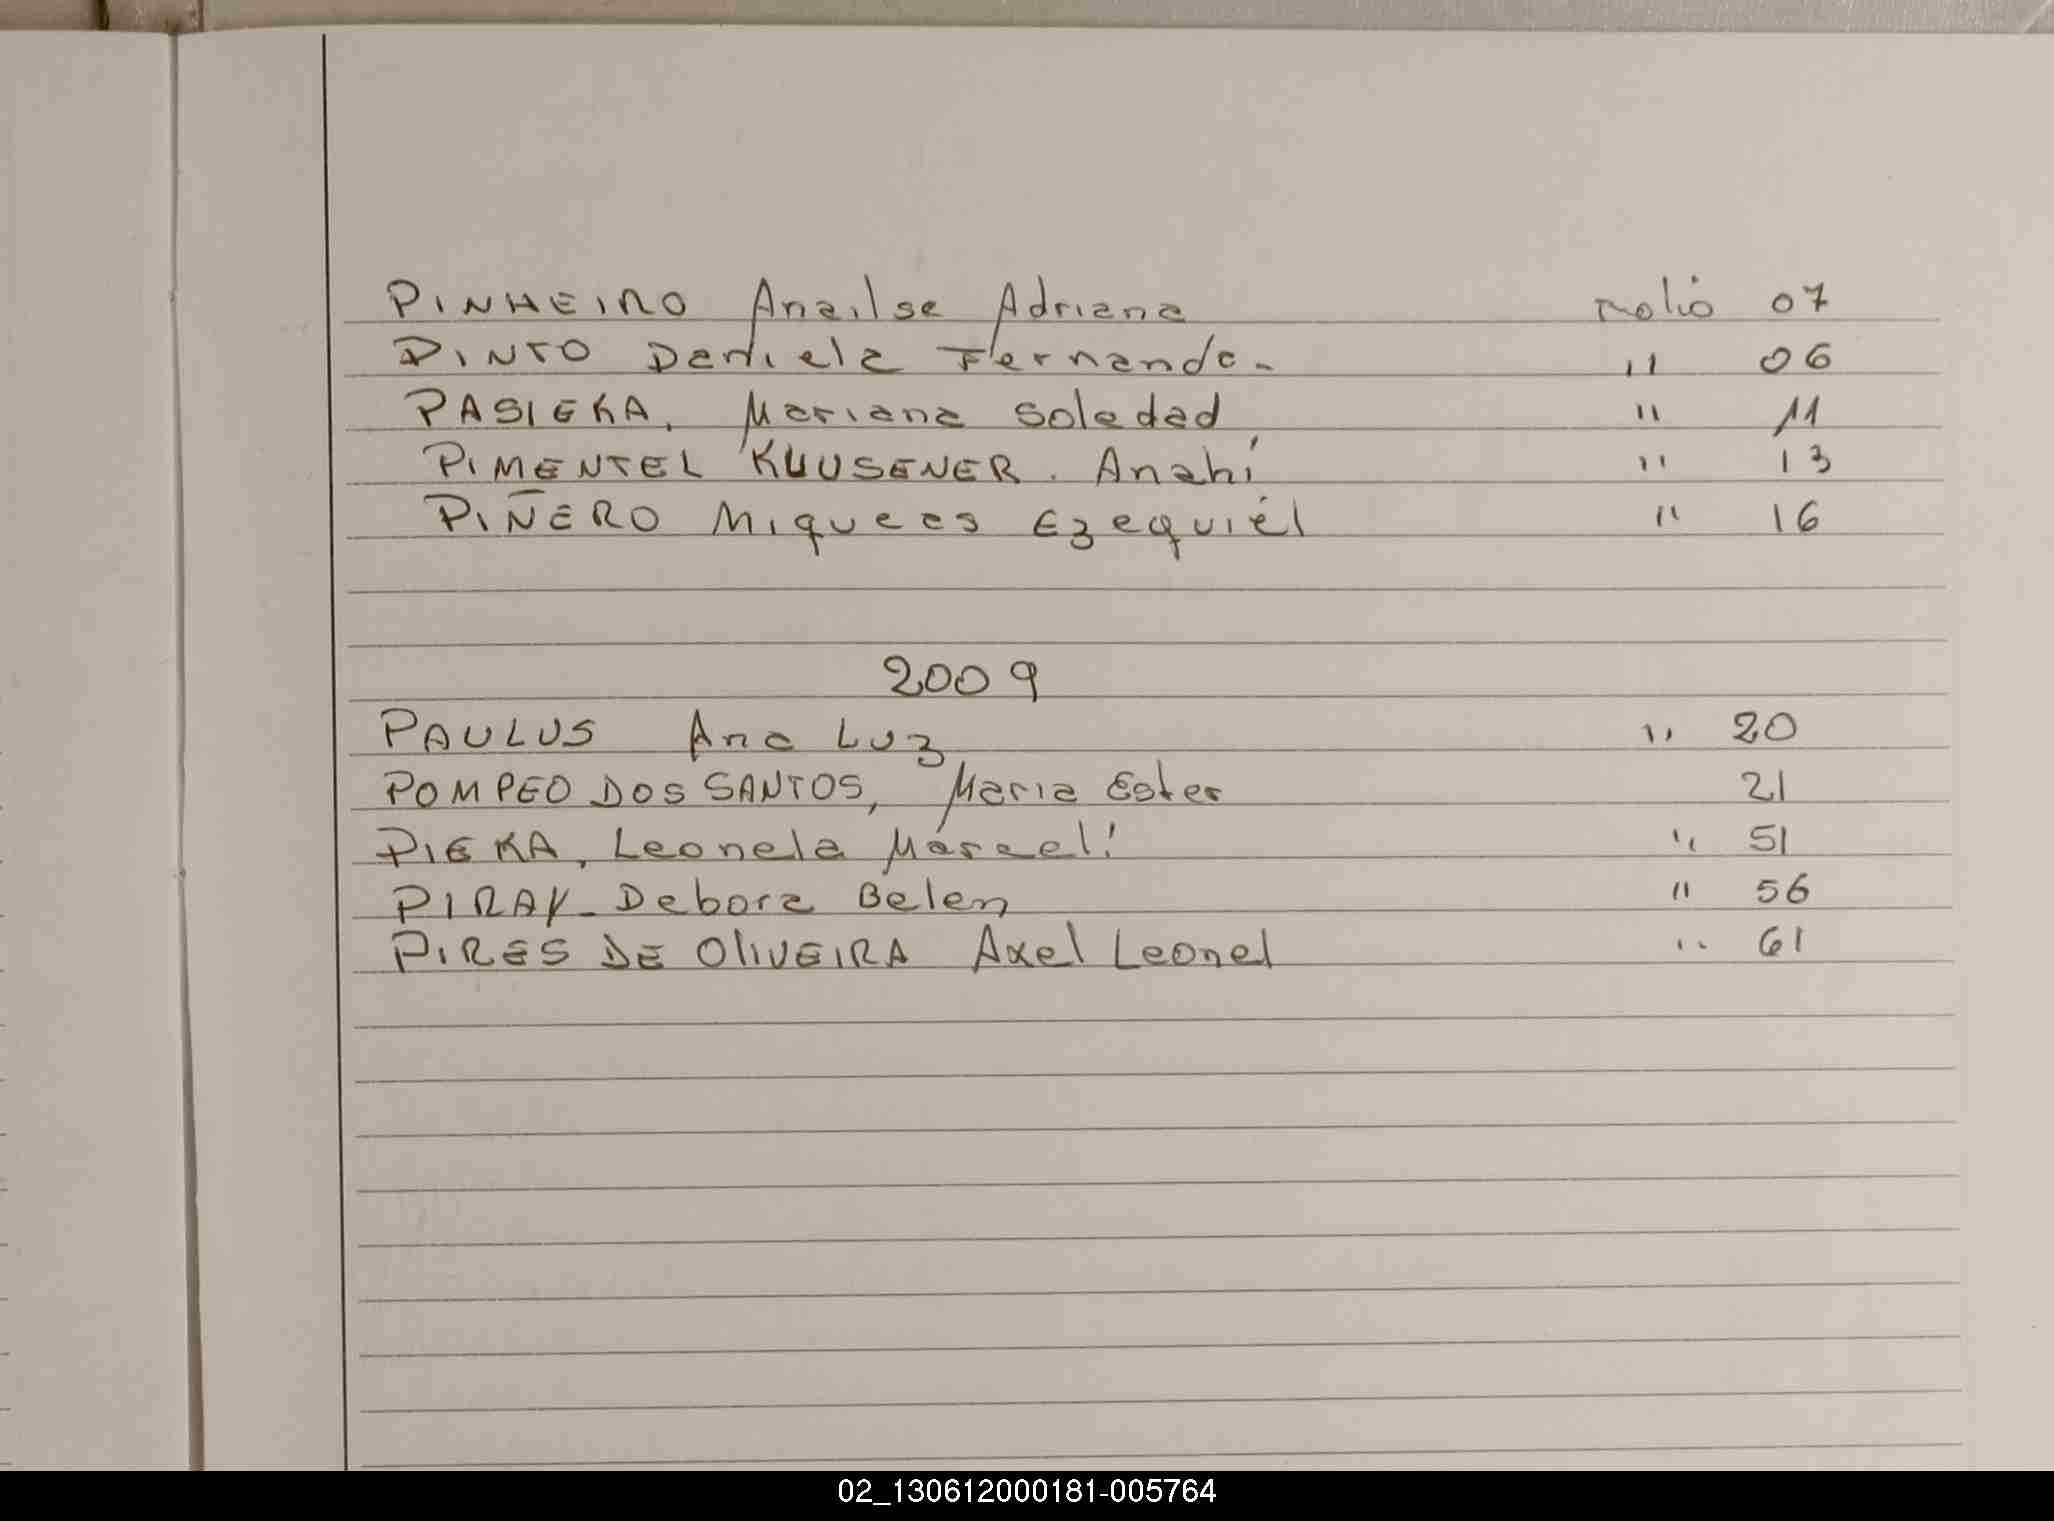 PINHEIRO Anailse Adriana Folio 07
PINTO Daniela Fernanda- " 06
PASIEKA, Mariana Soledad " 11
PIMENTEL KLUSENER. Anahí " 13
PIÑERO Miqueas Ezequiel " 16
2009
PAULUS Ana Luz " 20
POMPEO DOS SANTOS, Maria Ester 21
PIEKA, Leonela Marceli " 51
PIRAY- Debora Belen " 56
PIRES DE OLIVEIRA Axel Leonel " 61
02_130612000181-005764